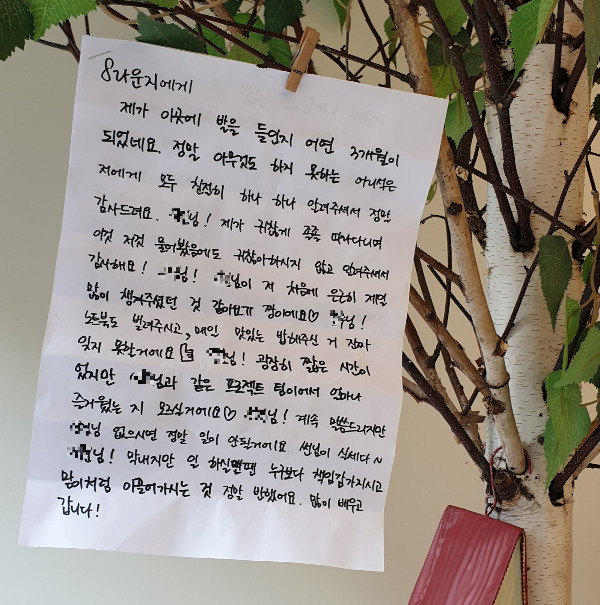 8라운지에게
제가 이곳에 발을 들인지 어연 3개월이
되었네요. 정말 아무것도 하지 못하는 어리석은
저에게 모두 친절히 하나 하나 알려주셔서 정말
감사드려요. 님! 제가 귀찮게 졸졸 따라다니며
이것 저것 물어봤음에도 귀찮아하시지 않고 알려주셔서
감사해요! 님! 님이 저 처음에 은근히 제일
많이 챙겨주셨던 것 같아요 짱이에요♡ 님!
노트북도 빌려주시고, 매인 맛있는 밥해주신 거 진짜
잊지 못할거에요 님! 굉장히 짧은 시간이
었지만 님과 같은 프로젝트 팀이여서 얼마나
즐거웠는 지 모르실거에요♡ 님! 계속 말씀드리지만
님 없으시면 정말 일이 안될거에요 썬님이 실세다~
님! 막내지만 일 하실땐 누구보다 책임감가지시고
맏이처럼 이끌어가시는 것 정말 반했어요. 많이 배우고
갑니다!